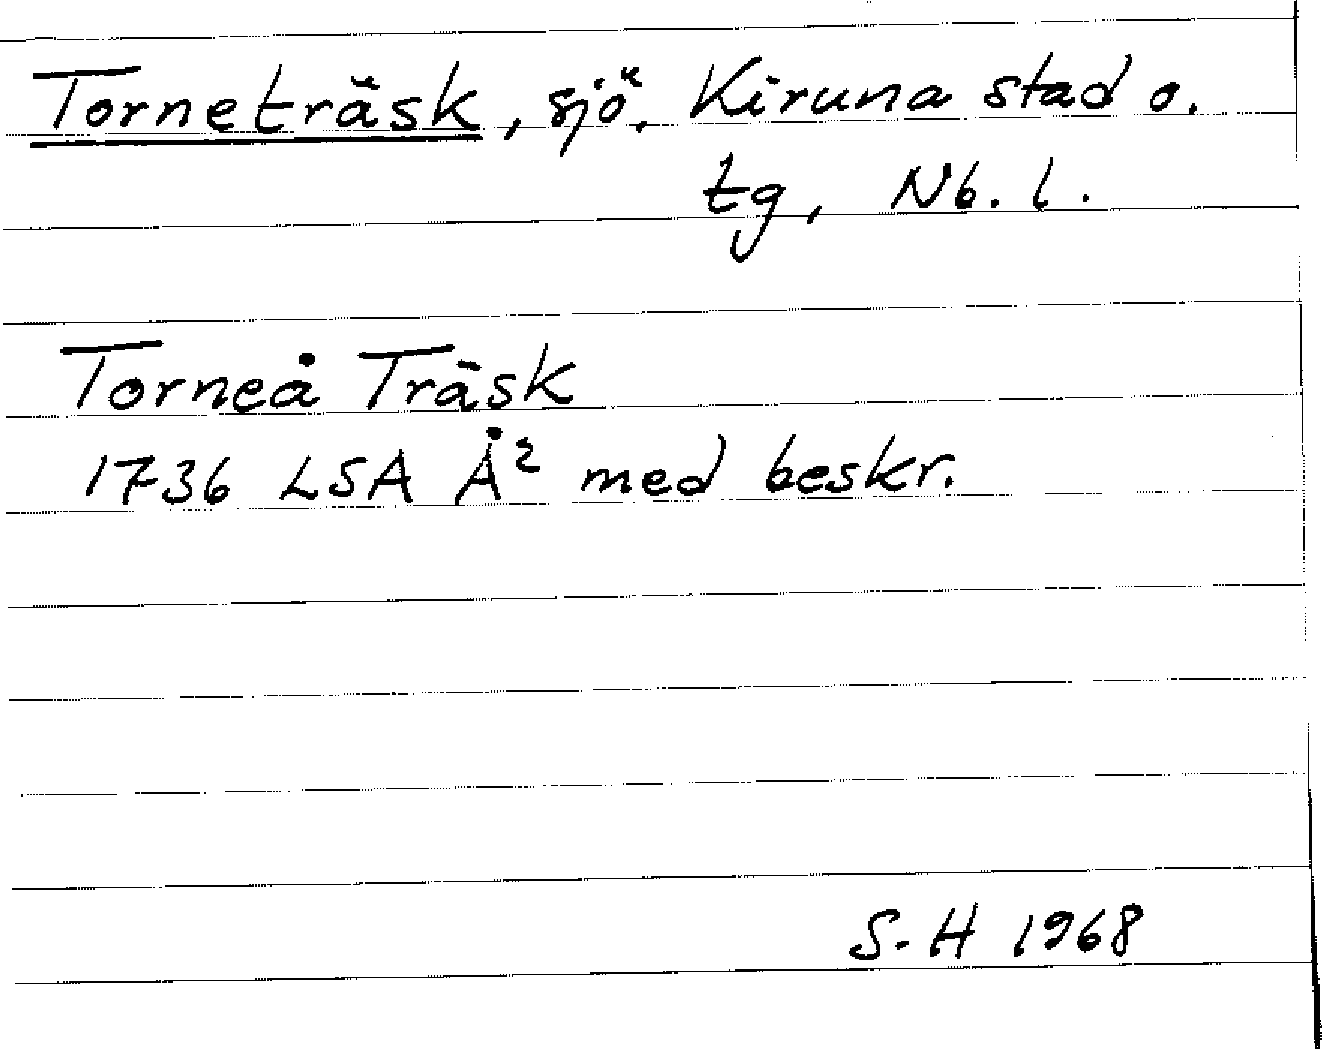 Torneträsk, sjö, Kiruna stad o.
tg, Nb. l.
Torneå Träsk
1736 LSA Å² med beskr.
S-H 1968